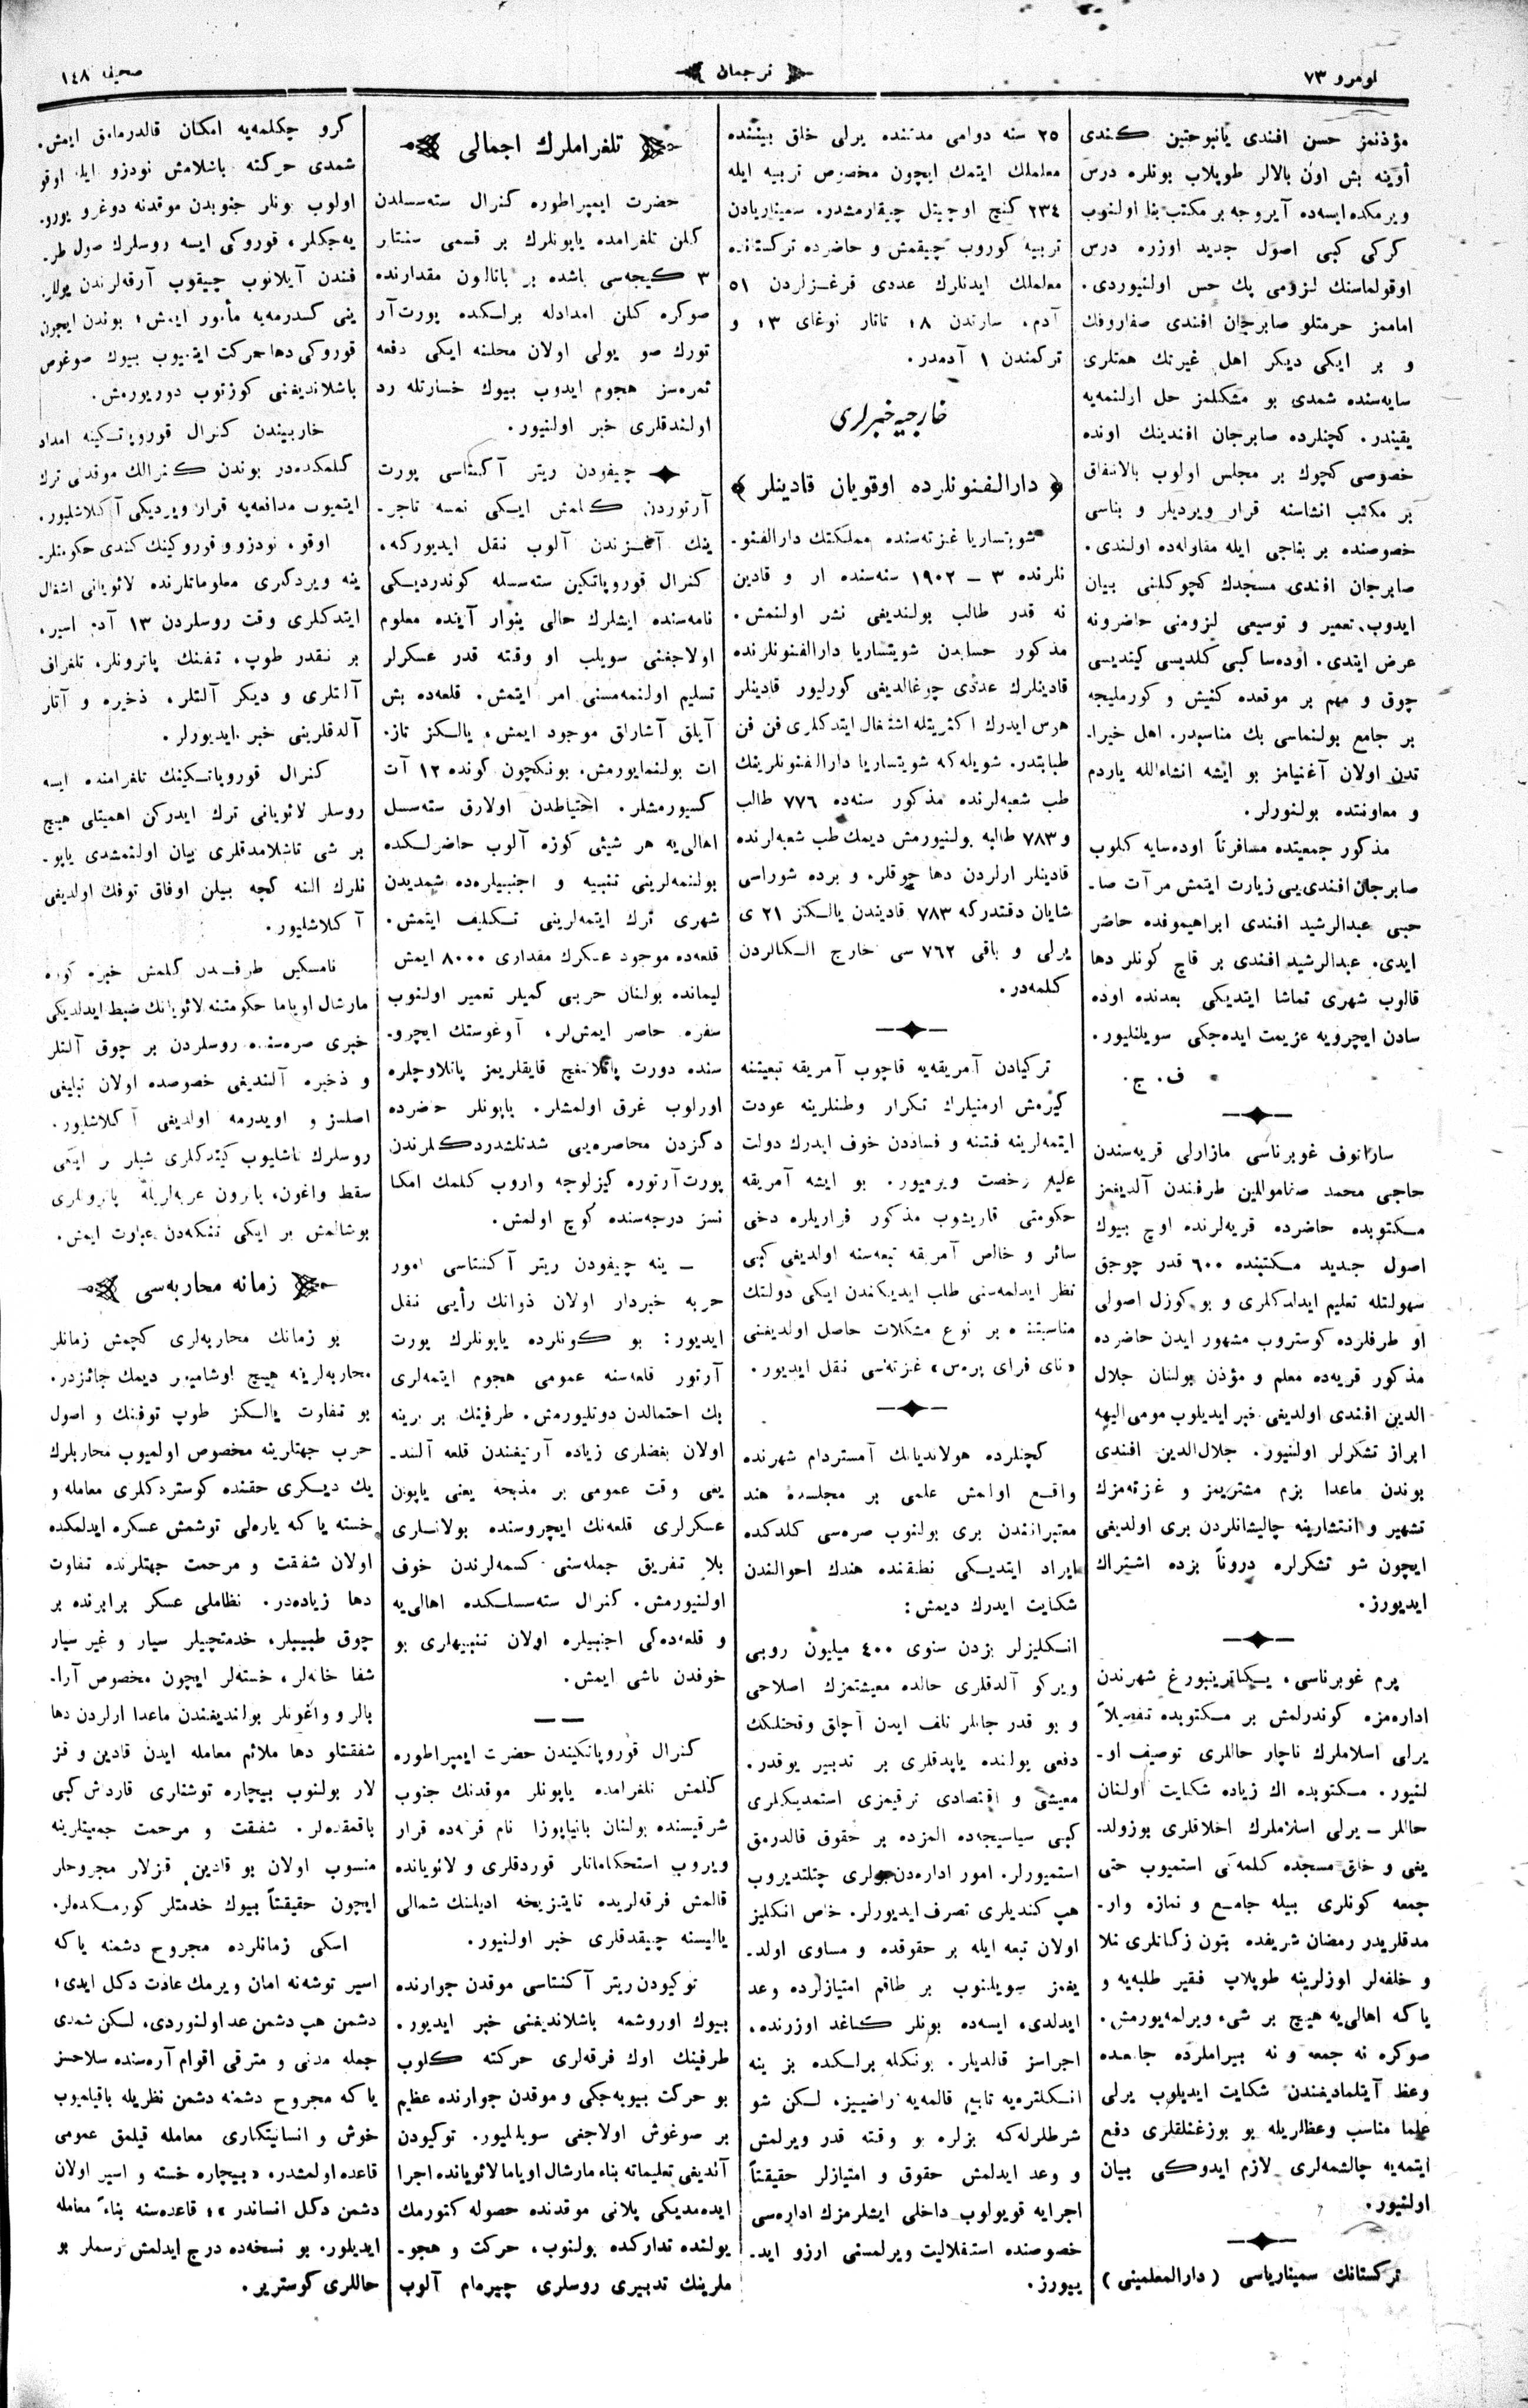 نومرو ۷۳
ترجمان
صحیفه ۱٤۸
مؤذنمز حسن افندی یانبوختین کندی
أوینه بش اون بالالر طوپلاب بونلره درس
ویرمکده ایسه‌ده آیروجه بر مکتب بنا اولنوب
کرکی کبی اصول جدید اوزره درس
اوقولماسنك لزومی پك حس اولنیوردی.
اماممز حرمتلو صابرجان افندی صفاروفك
و بر ایکی دیکر اهل غیرتك همتلری
سایه‌سنده شمدی بو مشکلمز حل ارلنمه‌یه
یقیندر. کچنلرده صابرجان افندینك اونده
خصوصی کچوك بر مجلس اولوب بالاتفاق
بر مکتب انشاسنه قرار ویردیلر و بناسی
خصوصنده بر بناجی ایله مقاوله‌ده اولندی.
صابرجان افندی مسجدك کچوکلنی بیان
ایدوب، تعمیر و توسیعی لزومنی حاضرونه
عرض ایتدی. اوده‌سا کبی کلدیسی کیتدیسی
چوق و مهم بر موقعده کنیش و کورملیجه
بر جامع بولنماسی بك مناسبدر. اهل خیرا-
تدن اولان آغنیامز بو ایشه انشاءالله یاردم
و معاونتده بولنورلر.
مذکور جمعیتده مسافرتاً اوده‌سایه کلوب
صابرجان افندی‌یی زیارت ایتمش مرآت صا-
حبی عبدالرشید افندی ابراهیموفده حاضر
ایدی. عبدالرشید افندی بر قاچ کونلر دها
قالوب شهری تماشا ایتدیکی بعدنده اوده
سادن ایچرویه عزیمت ایده‌جکی سویلنلیور.
ف. ج.
ساراتوف غوبرناسی مازارلی قریه‌سندن
حاجی محمد طرفندن آلدیغمز
مکتوبده حاضرده قریه‌لرنده اوچ بیوك
اصول جدید مکتبنده ٦۰۰ قدر چوجق
سهولتله تعلیم ایدلدکلری و بو کوزل اصولی
او طرفلرده کوستروب مشهور ایدن حاضرده
مذکور قریه‌ده معلم و مؤذن بولنان جلال
الدین افندی اولدیغی خبر ایدیلوب مومی الیهه
ابراز تشکرلر اولنیور. جلال‌الدین افندی
بوندن ماعدا بزم مشتریمز و غزته‌مزك
تشهیر و انتشارینه چالیشانلردن بری اولدیغی
ایچون شو تشکرلره دروناً بزده اشتراك
ایدیورز.
پرم غوبرناسی، یکاترینبورغ شهرندن
اداره‌مزه کوندرلمش بر مکتوبده تفصیلاً
یرلی اسلاملرك ناچار حاللری توصیف او-
لنیور. مکتوبده اك زیاده شکایت اولنان
حاللر – یرلی اسلاملرك اخلاقلری بوزولد-
یغی و خلق مسجده کلمه‌کی استمیوب حتی
جمعه کونلری بیله جامع و نمازه وار-
مدقلریدر رمضان شریفده بتون زکاتلری ملا
و خلفه‌لر اوزلرینه طوپلاپ فقیر طلبه‌یه و
یاکه اهالی‌یه هیچ بر شیء ویرلمه‌یورمش.
صوکره نه جمعه و نه بیراملرده جامعده
وعظ آیتلمادیغندن شکایت ایدیلوب یرلی
علما مناسب وعظلریله بو بوزغنلقلری دفع
ایتمه‌یه چالشمه‌لری لازم ایدوکی بیان
اولنیور.
ترکستانك سمیناریاسی (دارالمعلمینی)
۲٥ سنه دوامی مدتنده یرلی خلق بیننده
معلملك ایتمك ایچون مخصوص تربیه ایله
۲۳٤ کنج اوچیتل چیقارمشدر. سمیناریادن
تربیه کوروب چیقمش و حاضرده ترکستانده
معلملك ایدنلرك عددی قرغزلردن ٥۱
آدم، سارتدن ۱۸ تاتار نوغای ۱۳ و
ترکمندن ۱ آدمدر.
خارجیه خبرلری
﴿ دارالفنونلرده اوقویان قادینلر ﴾
شویتساریا غزته‌سنده مملکتك دارالفنو-
نلرنده ۳ – ۱۹۰۲ سنه‌سنده ار و قادین
نه قدر طالب بولندیغی نشر اولنمش.
مذکور حسابدن شویتساریا دارالفنونلرنده
قادینلرك عددی چوغالدیغی کورلیور قادینلر
هرس ایدرك اکثریتله اشتغال ایتدکلری فن فن
طبابتدر. شویله‌که شویتساریا دارالفنونلرینك
طب شعبه‌لرنده مذکور سنه‌ده ۷۷٦ طالب
و ۷۸۳ طالبه بولنیورمش دیمك طب شعبه‌لرنده
قادینلر ارلردن دها چوقلر، و برده شوراسی
شایان دقتدرکه ۷۸۳ قادیندن یالکز ۲۱ ی
یرلی و باقی ۷٦۲ سی خارج الکالردن
کلمه‌در.
ترکیادن آمریقه‌یه قاچوب آمریقه تبعیتنه
کیرمش ارمنیلرك تکرار وطنلرینه عودت
ایتمه‌لرینه فتنه و فساددن خوف ایدرك دولت
علیه رخصت ویرمیور. بو ایشه آمریقه
حکومتی قاریشوب مذکور فراریلره دخی
سائر و خالص آمریقه تبعه‌سنه اولدیغی کبی
نظر ایدلمه‌سنی طلب ایدیکندن ایکی دولتك
مناسبتنده بر نوع مشکلات حاصل اولدیغنی
«نای فرای پره‌س» غزته‌سی نقل ایدیور.
کچنلرده هولاندیانك آمستردام شهرنده
واقع اولمش علمی بر مجلسده هند
معتبرانندن بری بولنوب صره‌سی کلدکده
ایراد ایتدیکی نطقنده هندك احوالندن
شکایت ایدرك دیمش:
انکلیزلر بزدن سنوی ٤۰۰ میلیون روبی
ویرکو آلدقلری حالده معیشتمزك اصلاحی
و بو قدر جانلر تلف ایدن آچلق وقحتلکك
دفعی یولنده یاپدقلری بر تدبیر یوقدر.
معیشی و اقتصادی ترقیمزی استمدیکلری
کبی سیاسیجه‌ده المزده بر حقوق قالدرمق
استمیورلر. امور اداره‌دن چتلتدیروب
هپ کندیلری تصرف ایدیورلر. خاص انکلیز
اولان تبعه ایله بر حقوقده و مساوی اولد-
یغمز سویلنوب بر طاقم امتیازلرده وعد
ایدلدی، ایسه‌ده بونلر کاغد اوزرنده،
اجراسز قالدیلر. بونکله برلکده بز ینه
انکلتره‌یه تابع قالمه‌یه راضییز، لکن شو
شرطلرله‌که بزلره بو وقته قدر ویرلمش
و وعد ایدلمش حقوق و امتیازلر حقیقتاً
اجرایه قویولوب داخلی ایشلرمزك اداره‌سی
خصوصنده استقلالیت ویرلمسنی ارزو اید-
ییورز.
تلغراملرك اجمالی
حضرت ایمپراطوره کنرال سته‌سسلدن
کلن تلغرامده یاپونلرك بر قسمی سنتار
۳ کیجه‌سی باشده بر باتالون مقدارنده
صوکره کلن امدادله برلسکده پورت‌آر
تورك صو یولی اولان محلنه ایکی دفعه
ثمره‌سز هجوم ایدوب بیوك خسارتله رد
اولندقلری خبر اولنیور.
چیفودن ریتر آکنتاسی پورت
آرتوردن کلمش ایکی نمسه تاجر-
ینك آغزندن آلوب نقل ایدیورکه،
کنرال قوروپاتکین سته‌سسله کوندردیکی
نامه‌سنده ایشلرك حالی ینوار آینده معلوم
اولاجغنی سویلب او وقته قدر عسکرلر
تسلیم اولنمه‌مسنی امر ایتمش. قلعه‌ده بش
آیلق آشاراق موجود ایمش، یالکز تازه
ات بولنمایورمش. بونکچون کونده ۱۲ آت
کسیورمشلر. احتیاطدن اولارق سته‌سسل
اهالی‌یه هر شیئی کوزه آلوب حاضرلکده
بولنمه‌لرینی تنبیه و اجنبیلره‌ده شمدیدن
شهری ترك ایتمه‌لرینی تکلیف ایتمش.
قلعه‌ده موجود عسکرك مقداری ۸۰۰۰ ایمش
لیمانده بولنان حربی کمیلر تعمیر اولنوب
سفره حاضر ایمش‌لر، آوغوستك ایچرو-
سنده دورت یاپونلاوچلره
اورلوب غرق اولمشلر. یاپونلر حاضرده
دکزدن محاصره‌یی شدتلشدردکلرندن
پورت‌آرتوره کیزلوجه واروب کلمك امکا
نسز درجه‌سنده کوچ اولمش.
– ینه چیفودن ریتر آکنتاسی امور
حربه خبردار اولان ذوانك رأیی نقل
ایدیور: بو کونلرده یاپونلرك پورت
آرتور قلعه‌سنه عمومی هجوم ایتمه‌لری
بك احتمالدن دونلیورمش. طرفینك بر برینه
اولان بغضلری زیاده آرتیغندن قلعه آلند-
یغی وقت عمومی بر مذبحه یعنی یاپون
عسکرلری قلعه‌نك ایچروسنده بولانلری
بلا تفریق جمله‌سنی کسمه‌لرندن خوف
اولنیورمش. کنرال سته‌سسلکده اهالی‌یه
و قلعه‌ده‌کی اجنبیلره اولان تنبیهلری بو
خوفدن ناشی ایمش.
کنرال قوروپاتکیندن حضرت ایمپراطوره
کلمش تلغرامده یاپونلر موقدنك جنوب
شرقیسنده بولنان بانیاپوزا نام قریه‌ده قرار
ویروب استحکامانلر قوردقلری و لائویانده
قالمش فرقه‌لریده تایتزیخه ادیلنك شمالی
یالیسنه چیقدقلری خبر اولنیور.
توکیودن ریتر آکنتاسی موقدن جوارنده
بیوك اوروشمه باشلاندیغنی خبر ایدیور.
طرفینك اوك فرقه‌لری حرکته کلوب
بو حرکت بیویه‌جکی و موقدن جوارنده عظیم
بر صوغوش اولاجغی سویلنلیور. توکیودن
آلدیغی تعلیماته بناء مارشال اویاما لائویانده اجرا
ایده‌مدیکی پلانی موقدنده حصوله کتورمك
یولنده تدارکده بولنوب، حرکت و هجو-
ملرینك تدبیری روسلری چیرمام آلوب
کرو چکلمه‌یه امکان قالدرمامق ایمش.
شمدی حرکته باشلامش نودزو ایله اوقو
اولوب بونلر جنوبدن موقدنه دوغرو یورو-
یه‌جکلر، قوروکی ایسه روسلرك صول طر-
فندن آیلانوب چیقوب آرقه‌لرندن یوللر-
ینی کسدرمه‌یه مأمور ایمش؛ بوندن ایچون
قوروکی دها حرکت ایتمیوب بیوك صوغوش
باشلاندیغنی کوزتوب دوریورمش.
خاربیندن کنرال قوروپاتکینه امداد
کلمکده‌در بوندن کنرالك موقدنی ترك
ایتمیوب مدافعه‌یه قرار ویردیکی آکلاشلیور.
اوقو، نودزو و قوروکینك کندی حکومتلر-
ینه ویردکلری معلوماتلرنده لائویانی اشغال
ایتدکلری وقت روسلردن ۱۳ آدم اسیر،
بر نقدر طوپ، تفنك پاترونلر، تلغراف
آلتلری و دیکر آلتلر، ذخیره و آتلر
آلدقلرینی خبر ایدیورلر.
کنرال قوروپاتکینك تلغرامنده ایسه
روسلر لائویانی ترك ایدرکن اهمیتلی هیچ
بر شی تاشلامدقلری بیان اولنمشدی یاپو-
نلرك النه کچه بیلن اوفاق توفك اولدیغی
آکلاشلیور.
تامسکین طرفندن کلمش خبره کوره
مارشال اویاما حکومتنه لائویانك ضبط ایدلدیکی
خبری صره‌سنده روسلردن بر چوق آلتلر
و ذخیره آلندیغی خصوصده اولان تبلیغی
اصلسز و اویدرمه اولدیغی آکلاشلیور.
روسلرك تاشلیوب کیتدکلری شیلر ایکی
سقط واغون، یاترون عربه‌لریله پاترونلری
بوشالمش بر ایکی تفنکه‌دن عبارت ایمش.
زمانه محاربه‌سی
بو زمانك محاربه‌لری کچمش زمانلر
محاربه‌لرینه هیچ اوشامیور دیمك جائزدر.
بو تفاوت یالکز طوپ توفنك و اصول
حرب جهتلرینه مخصوص اولمیوب محاربلرك
یك دیکری حقنده کوستردکلری معامله و
خسته یاکه یاره‌لی توشمش عسکره ایدلمکده
اولان شفقت و مرحمت جهتلرنده تفاوت
دها زیاده‌در. نظاملی عسکر برابرنده بر
چوق طبیبلر، خدمتچیلر سیار و غیر سیار
شفا خانه‌لر، خسته‌لر ایچون مخصوص آرا-
بالر و واغونلر بولندیغندن ماعدا ارلردن دها
شفقتلو دها ملائم معامله ایدن قادین و قز
لار بولنوب بیچاره توشنلری قارداش کبی
باقمقده‌لر. شفقت و مرحمت جمعیتلرینه
منسوب اولان بو قادین قزلار مجروحلر
ایچون حقیقتاً بیوك خدمتلر کورمکده‌لر.
اسکی زمانلرده مجروح دشمنه یاکه
اسیر توشه‌نه امان ویرمك عادت دکل ایدی؛
دشمن هپ دشمن عد اولنوردی، لکن شمدی
جمله مدنی و مترقی اقوام آره‌سنده سلاحسز
یاکه مجروح دشمنه دشمن نظریله باقیلمیوب
خوش و انسانیتکاری معامله قیلمق عمومی
قاعده اولمشدر، «بیچاره خسته و اسیر اولان
دشمن دکل انساندر»؛ قاعده‌سنه بناءً معامله
ایدیلور. بو نسخه‌ده درج ایدلمش رسملر بو
حاللری کوستریر.